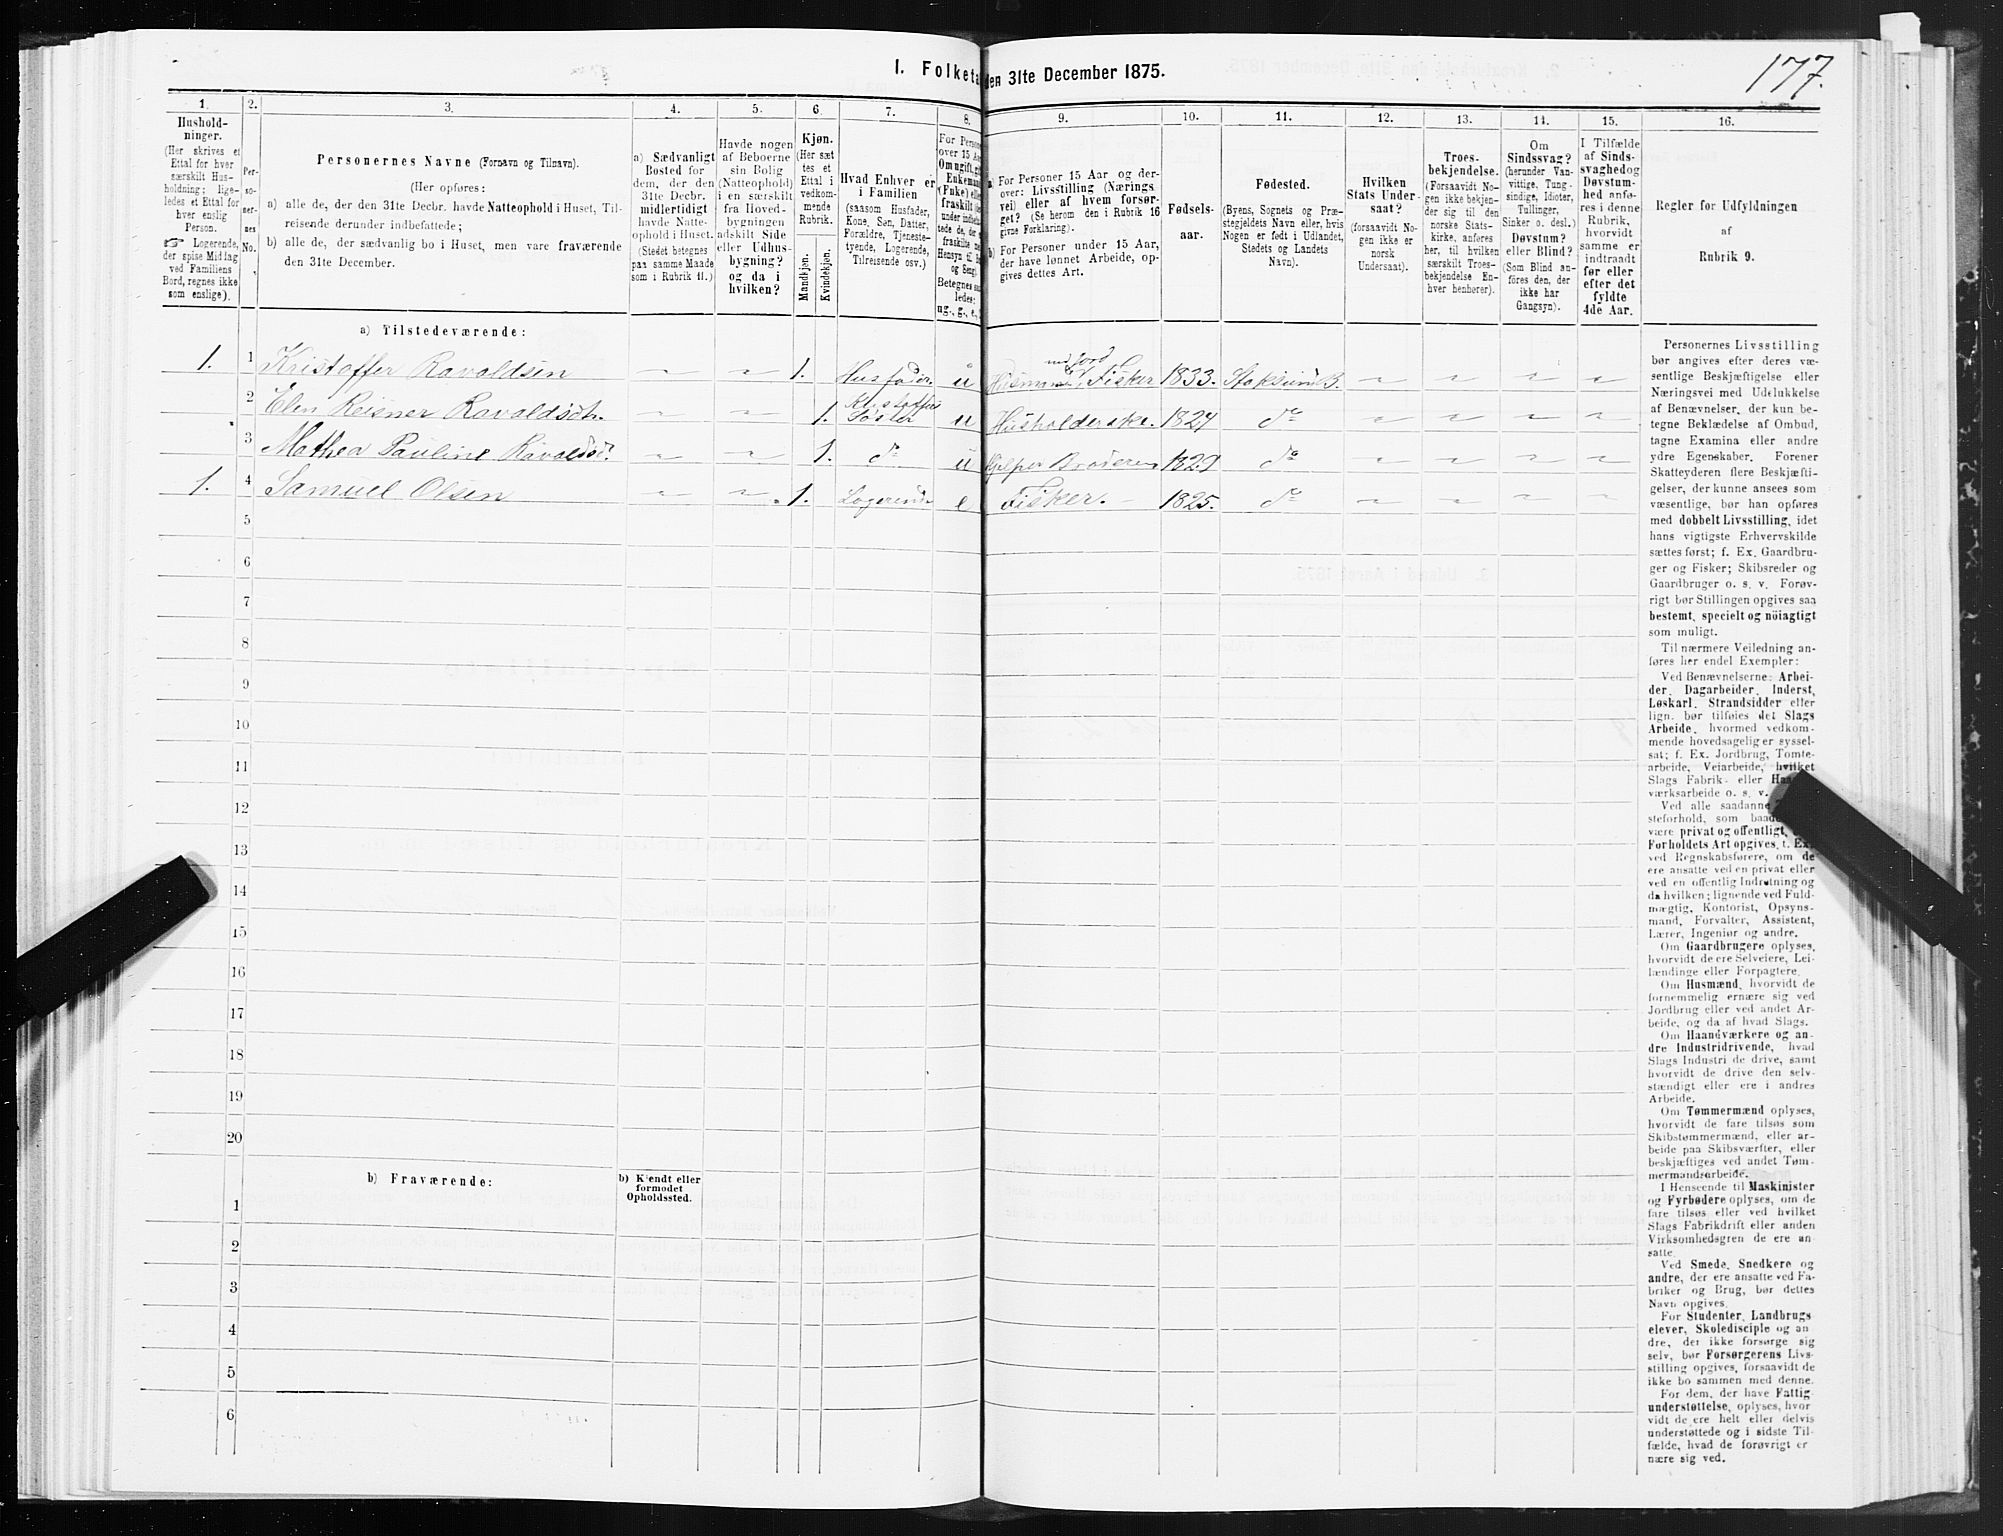 177.
I. Folketa
den 31te December 1875.
1. 2. 3. 4. 5. 6. 7. 8. 9. 10. 11. 12. 13. 14. 15. 16.
Hushold-
ninger.
(Her skrives et
Ettal for hver
særskilt Hus-
holdning; lige-
ledes et Ettal for
hver enslig
Person.
☞ Logerende,
der spise Middag
ved Familiens
Bord, regnes ikke
som enslige).
Per-
so-
ner-
nes
No.
Personernes Navne (Fornavn og Tilnavn).
(Her opføres:
a) alle de, der den 31te Decbr. havde Natteophold i Huset, Til-
reisende derunder indbefattede;
b) alle de, der sædvanlig bo i Huset, men vare fraværende
den 31te December.
a) Sædvanligt
Bosted for
dem, der den
31te Decbr.
midlertidigt
havde Natte-
ophold i Huset.
(Stedet betegnes
paa samme Maade
som i Rubrik 11.)
Havde nogen
af Beboerne
sin Bolig
(Natteophold)
i en særskilt
fra Hoved-
bygningen
adskilt Side
eller Udhus-
bygning?
og da i
hvilken?
Kjøn.
(Her sæt-
tes et
Ettal i
vedkom-
mende
Rubrik.
Mandkjøn.
Kvindekjøn.
Hvad Enhver er
i Familien
(saasom Husfader,
Kone, Søn, Datter,
Forældre, Tjeneste-
tyende, Logerende,
Tilreisende osv.)
For Person
over 15 Aa
Om ugift, gi
Enkeman
(Enke) elle
fraskilt
under indbe
tede de,
fraskilte
Hensyn til
og Seng).
Betegnes saa
ledes:
ug., g., e.,
a) For Personer 15 Aar og der-
over: Livsstilling (Nærings-
vei) eller af hvem forsør-
get? (Se herom den i Rubrik 16
givne Forklaring).
b) For Personer under 15 Aar,
der have lønnet Arbeide, op-
gives dettes Art.
Fødsels-
aar.
Fødested.
(Byens, Sognets og Præ-
stegjeldets Navn eller, hvis
Nogen er født i Udlandet,
Stedets og Landets
Navn).
Hvilken
Stats Under-
saat?
(forsaavidt No-
gen ikke er
norsk
Undersaat).
Troes-
bekjendelse.
(Forsaavidt No-
gen ikke bekjen-
der sig til den
norske Stats-
kirke, anføres
her, til hvilken
særskilt Troes-
bekjendelse En-
hver henhører).
Om
Sindssvag?
(herunder Van-
vittige, Tung-
sindige, Idioter,
Tullinger,
Sinker o. desl.)
Døvstum?
eller Blind?
(Som Blind an-
føres den, der
ikke har
Gangsyn).
I Tilfælde
af Sinds-
svaghed og
Døvstum-
hed anfø-
res i denne
Rubrik,
hvorvidt
samme er
indtraadt
før eller
efter det
fyldte
4de Aar.
Regler for Udfyldningen
af
Rubrik 9.
a) Tilstedeværende:
1. 1 Kristoffer Ravaldsen 1. Husfader u Husmand med Jord, Fisker 1833. Stoksund B.
2 Elen Reisner Ravaldsdtr. 1. Kristoffers Søster u Husholderske. 1827 do
3 Mathea Pauline Ravaldsd. 1. do u Hjelper Broderen 1829 do
1. 4 Samuel Olsen 1. Logerende e Fisker. 1825. do
5
6
7
8
9
10
11
12
13
14
15
16
17
18
19
20
b) Fraværende:
b) Kjendt eller
formodet
Opholdssted.
1
2
3
4
5
6
Personernes Livsstilling
bør angives efter deres væ-
sentlige Beskjæftigelse eller
Næringsvei med Udelukkelse
af Benævnelser, der kun be-
tegne Beklædelse af Ombud,
tagne Examina eller andre
ydre Egenskaber. Forener
Skatteyderen flere Beskjæfti-
gelser, der kunne ansees som
væsentlige, bør han opføres
med dobbelt Livsstilling, idet
hans vigtigste Erhvervskilde
sættes først; f. Ex. Gaardbru-
ger og Fisker; Skibsreder og
Gaardbruger o. s. v. Forøv-
rigt bør Stillingen opgives saa
bestemt, specielt og nøiagtigt
som muligt.
Til nærmere Veiledning an-
føres her endel Exempler:
Ved Benævnelserne: Arbei-
der, Dagarbeider, Inderst,
Løskarl, Strandsidder eller
lign. bør tilføies det Slags
Arbeide, hvormed vedkom-
mende hovedsagelig er syssel-
sat; f. Ex. Jordbrug, Tomte-
arbeide, Veiarbeide, hvilket
Slags Fabrik- eller Haa
værksarbeide o. s. v.
Ved alle saadanne
steforhold, som baade
være privat og offentligt,
Forholdets Art opgives, f. Ex.
ved Regnskabsførere, om de
ere ansatte ved en privat eller
ved en offentlig Indretning og
da hvilken; lignende ved Fuld-
mægtig, Kontorist, Opsyns-
mand, Forvalter, Assistent,
Lærer, Ingeniør og andre.
Om Gaardbrugere oplyses,
hvorvidt de ere Selveiere, Lei-
lændinge eller Forpagtere.
Om Husmænd, hvorvidt de
fornemmelig ernære sig ved
Jordbrug eller ved andet Ar-
beide, og da af hvad Slags.
Om Haandværkere og an-
dre Industridrivende, hvad
Slags Industri de drive, samt
hvorvidt de drive den selv-
stændigt eller ere i andres
Arbeide.
Om Tømmermænd oplyses,
hvorvidt de fare tilsøs som
Skibstømmermænd, eller ar-
beide paa Skibsværfter, eller
beskjæftiges ved andet Tøm-
mermandsarbeide.
I Henseende til Maskinister
og Fyrbødere oplyses, om de
fare tilsøs eller ved hvilket
Slags Fabrikdrift eller anden
Virksomhedsgren de ere an-
satte.
Ved Smede, Snedkere og
andre, der ere ansatte ved Fa-
briker og Brug, bør dettes
Navn opgives.
For Studenter, Landbrugs-
elever, Skoledisciple og an-
dre, der ikke forsørge sig
selv, bør Forsørgerens Livs-
stilling opgives, forsaavidt de
ikke bo sammen med denne.
For dem, der have Fattig-
understøttelse, oplyses, hvor-
vidt de ere helt eller delvis
understøttede og i sidste Til-
fælde, hvad de forøvrigt er-
nære sig ved.